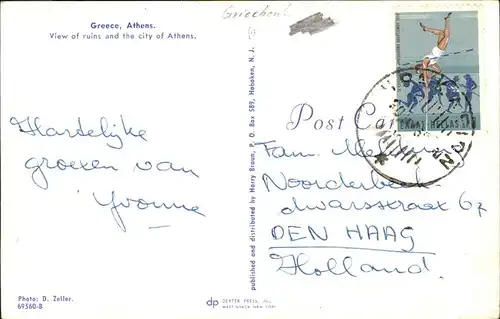 Greece, Athens.
View of ruins and the city of Athens.
Griechenl.
Hartelijke
groeten van
Yvonne
published and distributed by Harry Braun, P. O. Box 589, Hoboken, N. J.
Post Ca
ΕΛΛΑΣ HELLAS
Fam.
dwarsstraat 67
DEN HAAG
Holland.
Photo: D. Zeller.
69560-B
dp DEXTER PRESS, INC.
WEST NYACK, NEW YORK